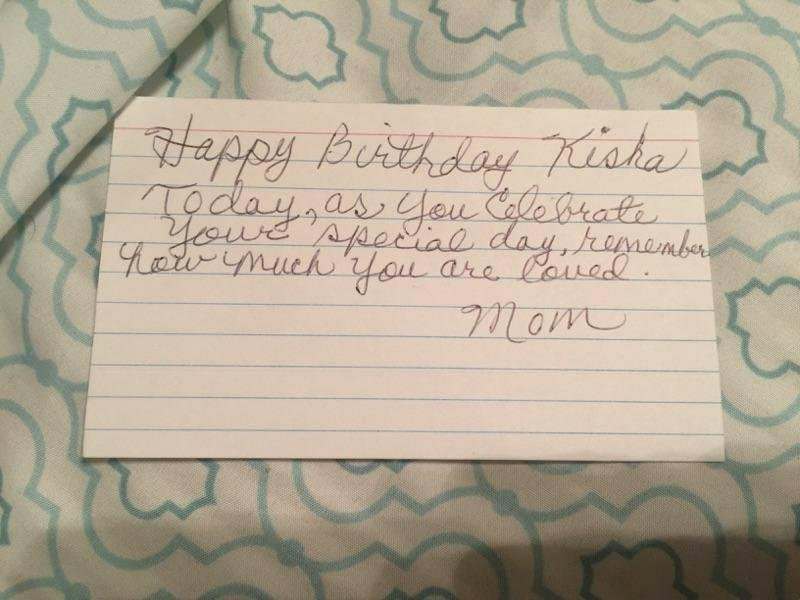 Happy Birthday Kisha
Today, as you Celebrate
your special day, remember
how much you are loved.
Mom